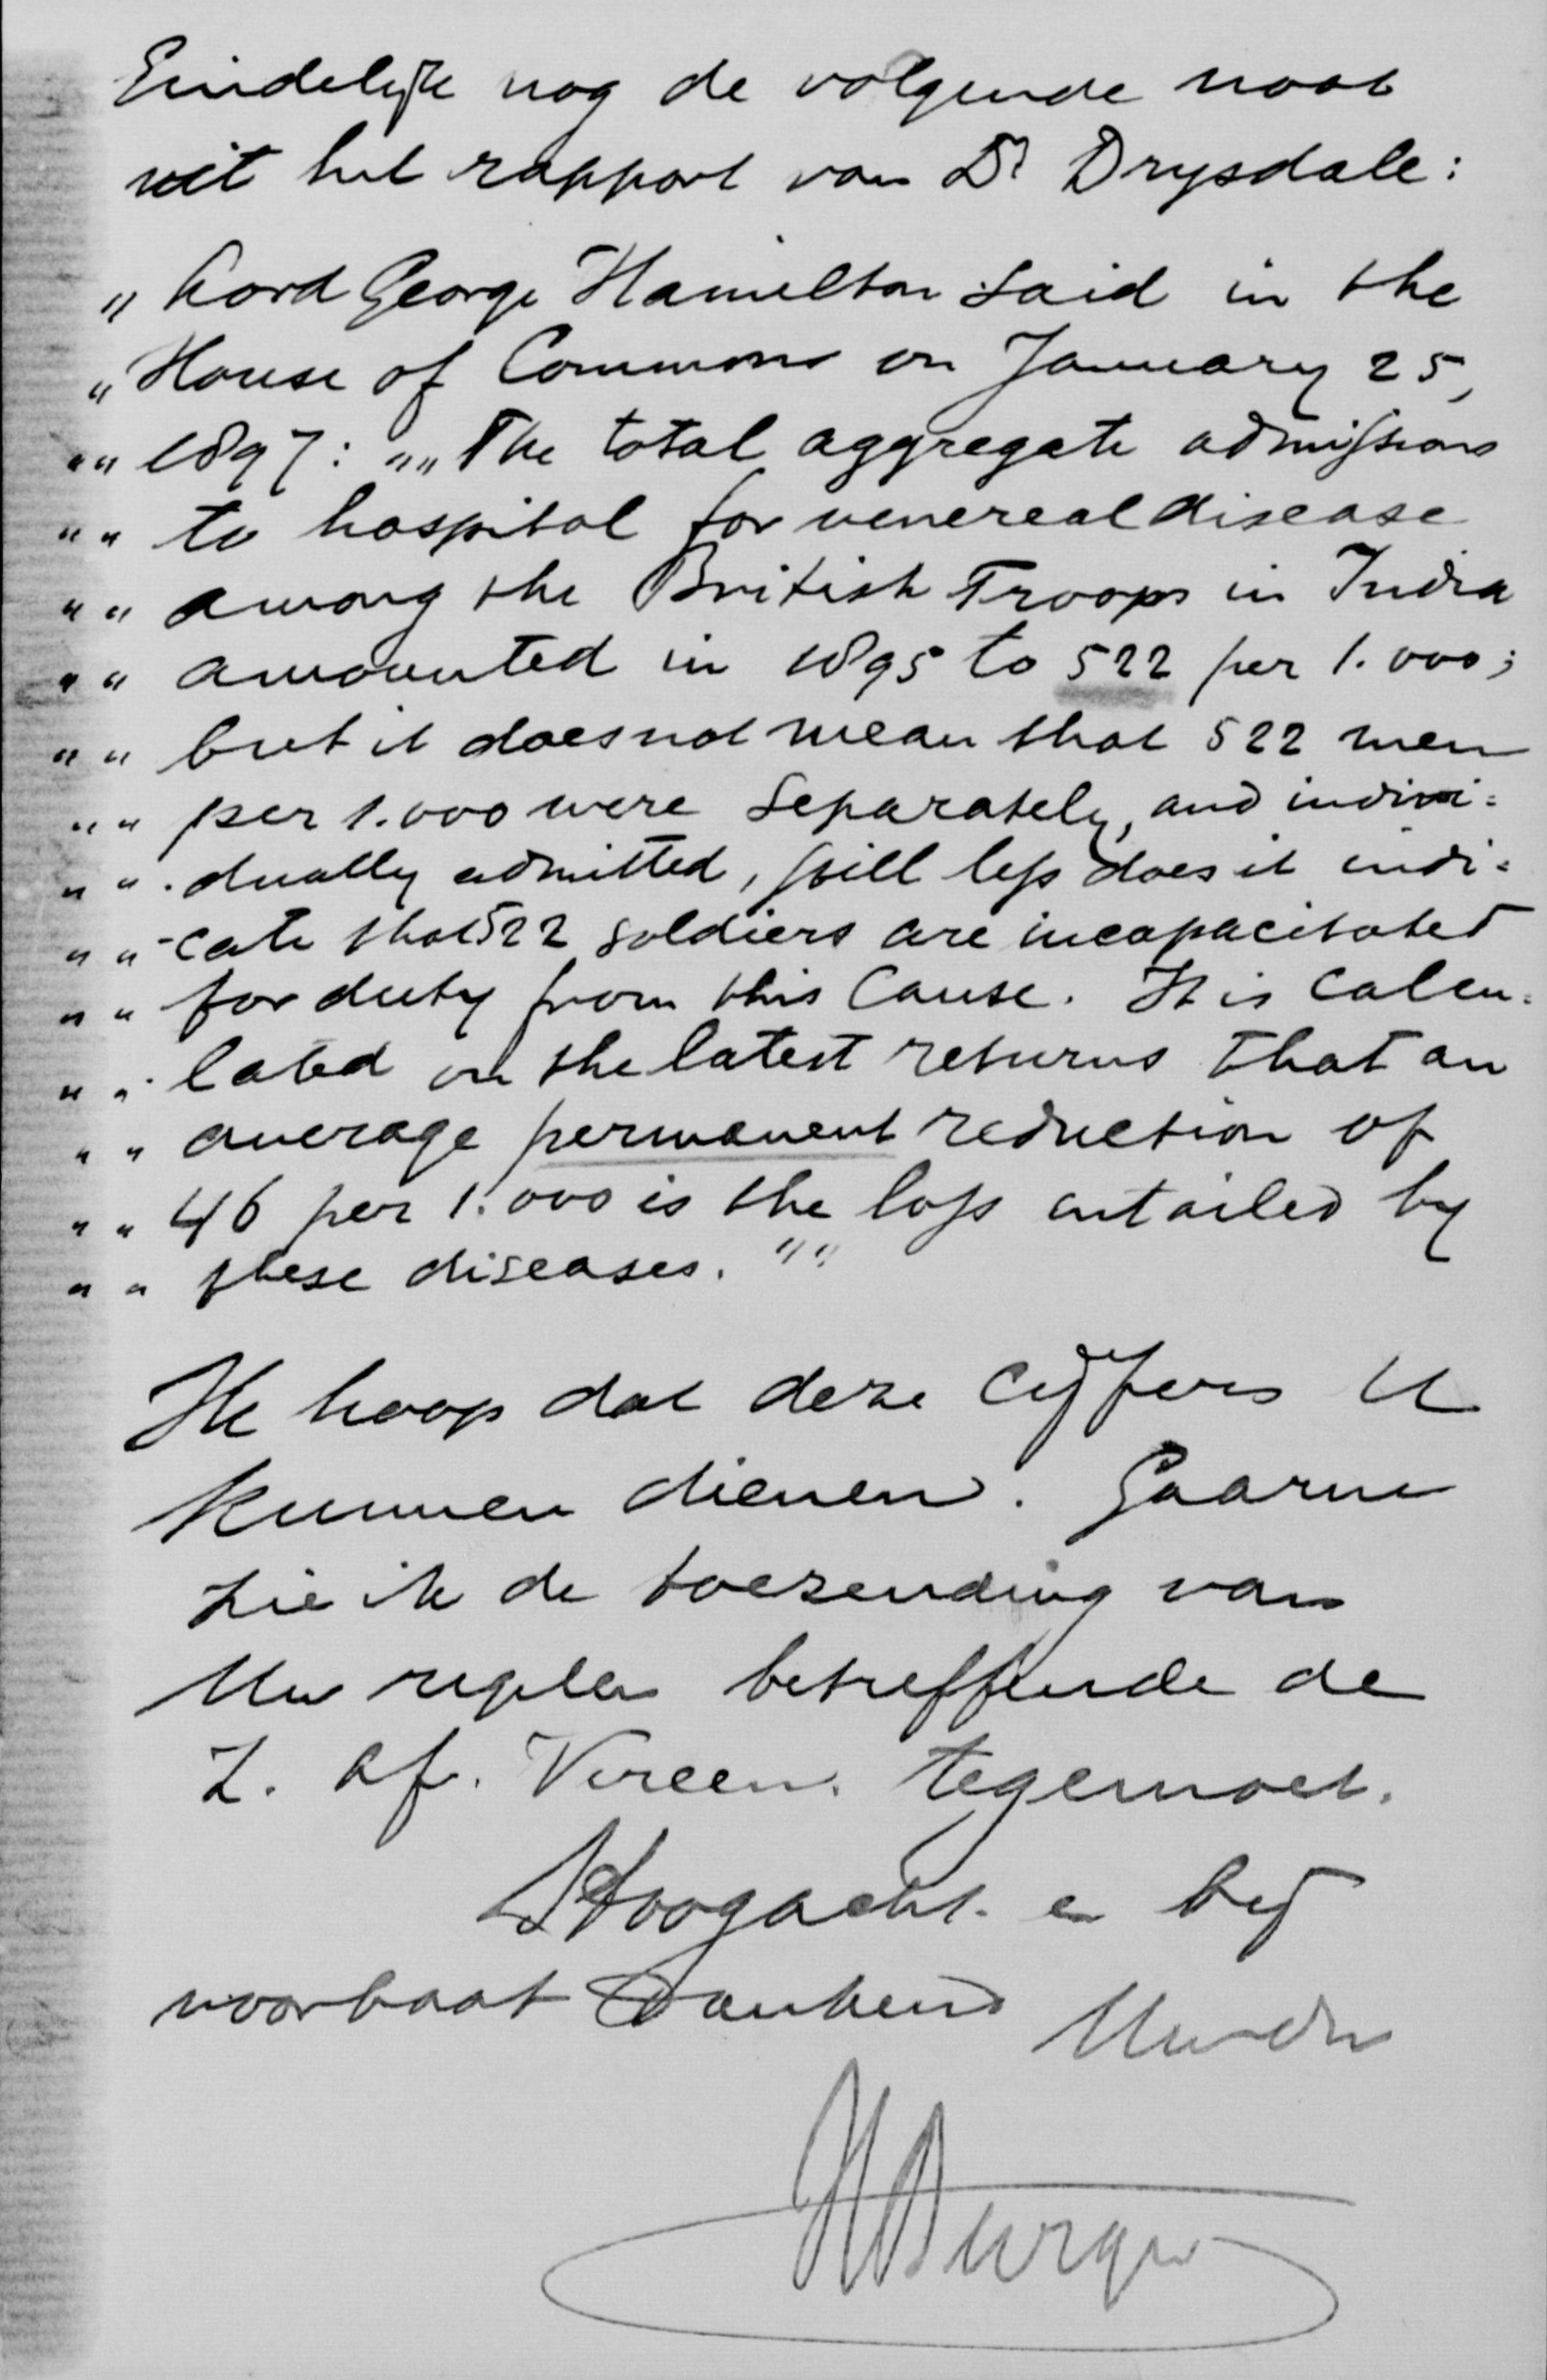 Eindelijk nog de volgende noot
uit het rapport van Dr Drysdale:
„ Lord George Hamilton said in the
„ House of Commons on January 25,
„„ 1897: „„The total aggregate admissions
„ „ to hospital for venereal disease
„ „ among the British Troops in India
„ „ amounted in 1895 to 522 per 1.000;
„ „ but it does not mean that 522 men
„ „ per 1.000 were separately, and indivi=
„ „ dually admitted, still less does it indi=
„ „ cate that 522 soldiers are incapacitated
„ „ for duty from this cause. It is calcu=
„ „ lated on the latest returns that an
„ „ average permanent reduction of
„ „ 46 per 1.000 is the loss entailed by
„ „ these diseases. ""
Ik hoop dat deze cijfers U
kunnen dienen. Gaarne
zie ik de toezending van
Uw regelen betreffende de
Z. Af. Vereen. tegemoet.
Hoogacht. en bij
voorbaat dankend
Uw dr
HBurger